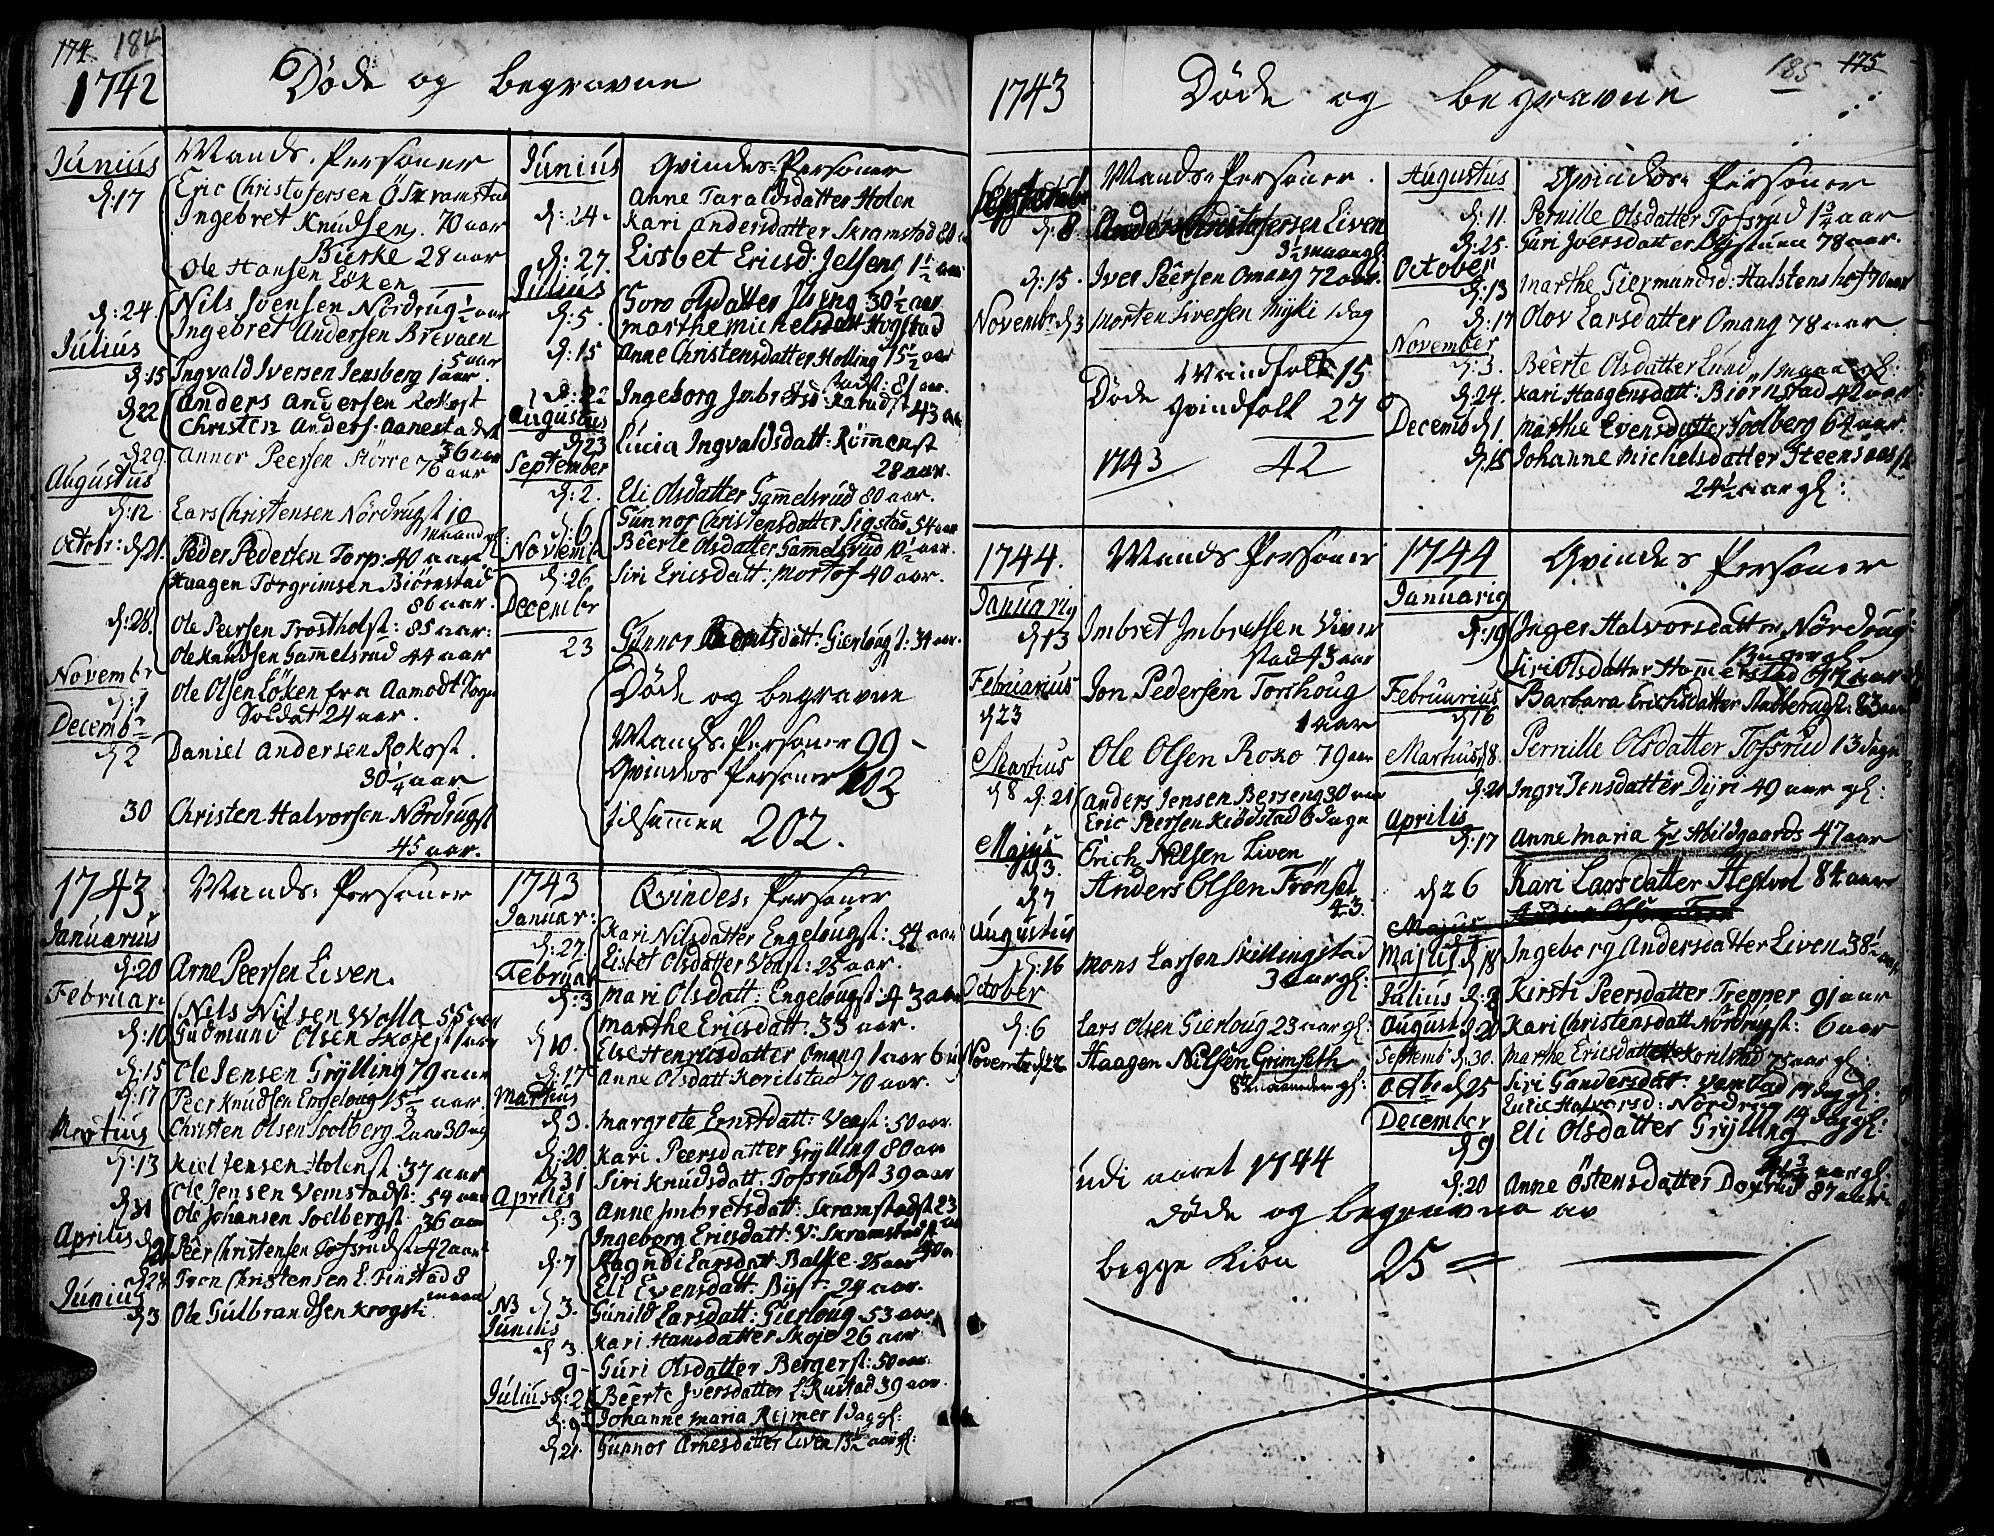 174 184
1742 Døde og begravne
Junius Mands-Personer
d: 17 Eric Christofersen Ø Skramstad
Ingebret Knudsen 70 aar
Birke 28 aar
Ole Hansen Løken
d: 24 Nils Svensen Nordrug ½ aar
Ingebret Andersen Brevaen
Julius 5 aar
d. 15 Ingvald Iversen Jensberg 1 aar.
d 22 Anders Andersen Rokost
Christen Anders: Aanestadst
36 aar
d 29 Annor Peersen Större 76 aar
Augustus
d: 12 Lars Christensen Nördrugst 10
maan gl:
Octobr: d 21 Peder Pedersen Torp: 40 aar
Haagen Torgrimsen Biørnstad
86 aar.
d: 28. Ole Peersen Trostholst: 85 aar:
Ole Knudsen Gammelsrud 44 aar
Novembr
d: 1 Ole Olsen Løken fra Aamodt Sogn
Soldat 24 aar.
Decembr
d 2 Daniel Andersen Rokost.
30¼ aar
30 Christen Halvorsen Nördrugst
45 aar.
Junius Qvindes-Personer
Anne Taraldsdatter Holen
d: 24 Kari Andersdatter Skramstad 80
d: 27. Lisbet Ericsd: Jelseng 1½ aar
Julius
d: 5. Goro Olsdatter Ilseng 30½ aar
Marthe Michelsdatt Hogstad
d: 15 Anne Christensdatter Holling 15½ aar
d: 22 Ingeborg Imbretsd: Karudst 43 aar
Augustus
d 23 Lucia Ingvaldsdatt: Römenst
28 aar.
September
d: 2. Eli Olsdatter Gammelsrud 80 aar.
d: 6 Gunnor Christensdatter Sigstad. 54 aar
Novemb Beerte Olsdatter Gammelsrud 10½ aar.
d: 26 Siri Ericsdatt: Mortof 40 aar.
December
23 Gunnor Berntsdatt: Gierlougst: 34 aar.
Døde og begravne
Mands-Personer 99-
Qvindes Personer 103
tilsammen 202.
1743 Mands-Personer
Januarius
d: 20 Arne Peersen Liven.
Februar:
Nils Nilsen Wolla 55 aar
d: 10 Gudmund Olsen Skojest 1 aar
d: 15 Ole Jensen Grylling 79 aar
d: 17 Peer Knudsen Engeloug 15½ aar.
Martius Christen Olsen Soelberg 2 aar 30 ug
d: 13 Kiel Jensen Holenst: 37 aar
Ole Jensen Vemstadst: 54 aar
d 31 Ole Johansen Soelbergst 36 aar
Aprilis d 21 Peer Christensen Tofsrudst 42 aar
d 28 Tron Christensen L: Finstad 8
maan
Junius
d 3 Ole Gulbrandsen Krogst:
1743 Qvindes-Personer
Januar:
d: 27. Kari Nilsdatter Engelougst: 54 aar
Februar Lisbet Olsdatter Venst: 25 aar.
d: 3 Mari Olsdatt: Engelougst 43 aar
d 10. Marthe Ericsdatt: 33 aar.
Else Henricsdatter Omang 1 aar 6 u
d: 17 Anne Olsdatt Korilstad 70 aar.
Martius
d 3. Margrete Ernstdatt: Venst: 50 aar.
d: 20 Kari Peersdatter Grylling 80 aar
d 31 Siri Knudsdatt: Tofsrudst 39 aar
Aprilis
d: 3 Anne Imbretsdatt: Skramstadst 23
Ingeborg Ericsdatt: V: Skramstadst 40 aar
d: 7 Ragndi Larsdatt Balke 25 aar
Eli Evensdatt. Byst. 24 aar.
NB d 3. Gunild Larsdatt: Gierloug 53 aar
Junius
d 3 Kari Hansdatter Skoje 26 aar
9- Guri Olsdatter Bergerst: 50 aar.
Julius d: 2 Beerte Iversdatter L: Rustad 39 aar.
d: 9 Johanne Maria Rejmer 1 Dag gl:
d 21. Gunnor Arnesdatter Liven 13½ aar gl:
185 175
1743 Døde og begravne
September Mands-Personer.
d. 8. Anders Christofersen Liven
3½ maan gl:
d: 15. Iver Peersen Omang 72 aar.
Novembr d 3 Morten Siversen Myki 1 dag
Døde Mandfolk 15
Qvindfolk 27
1743 42
Augustus Qvindes-Personer
d: 11. Pernille Olsdatter Tofsrud 1¾ aar
d: 25. Guri Iversdatter Dystuen 78 aar.
October
d: 13 Marthe Giermundsd: Halstenshof 70 aar
d: 17 Olov Larsdatter Omang 78 aar
November
d: 3. Beerte Olsdatter Lund, 1 maan gl:
d: 24. Kari Haagensdatt: Biörnstad 42 aar
Decemb d 1 Marthe Evensdatter Soelberg 64 aar
d. 15 Johanne Michelsdatter Steensaasst
24½ aar gl:
1744. Mands Personer
Januarig
d 13 Imbret Imbretsen Viver
stad 43 aar
Februarius Jon Pedersen Torshoug
d 23 1 aar
Martius Ole Olsen Roko 79 aar
d 8
d: 21 Anders Jensen Berseng 30 aar
Eric Peersen Kiödstad 6 Dage
Majus
d 3. Erich Nilsen Liven
d 7 Anders Olsen Frönset
43.
Augustus
d: 16 Mons Larsen Skillingstad
3 aar gl:
October
d: 6 Lars Olsen Gierloug 23 aar gl:
Novemb d 22 Haagen Nilsen Grimseth
8 maaneder gl:
udi aaret 1744
døde og begravne av
begge Kiøn 25
1744 Qvindes Personer
Januarig
d: 19 Inger Halvorsdatter Nördrug
Siri Olsdatter Hommelstad
Februarius Barbara Erichsdatter Slubberudst: 83 aar
d 16
Martius d 8. Pernille Olsdatter Tofsrud 13 dage
d: 21 Ingri Jensdatter Dyri 49 aar gl:
Aprilis
d: 17 Anne Maria Abildgaards 47 aar
d 26 Kari Larsdatter Hestvol 84 aar
Majus
Majus d 18 Ingeborg Andersdatter Liven 38½ aar
Julius d: 2 Kirsti Peersdatter Trepper 91 aar
August d 20 Kari Christensdatt Nördrugst: 6 aar
Septemb d: 30. Marthe Ericsdatter Korilstad 75 aar gl:
Octbr d 25 Siri Gundersdat: Vemstad 14 Dag gl:
Lucie Halvorsd: Nordrug 14 Dag gl:
December Eli Olsdatter Grylling
d 9
d: 20 Anne Östensdatter Doxrud 87 aar